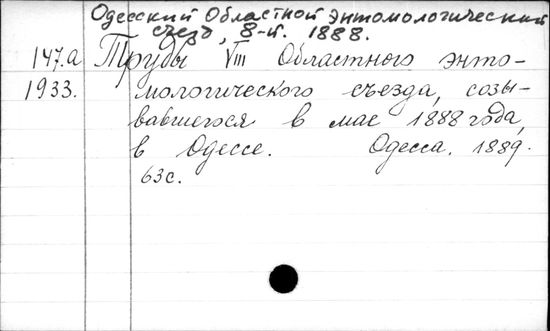 Одесский Областной энтомологический
съезд, 8-й. 1888.
147.а Труды VIII Областного энто-
1933. мологического съезда, созы-
вавшегося в мае 1888 года,
в Одессе. Одесса. 1889.
63с.